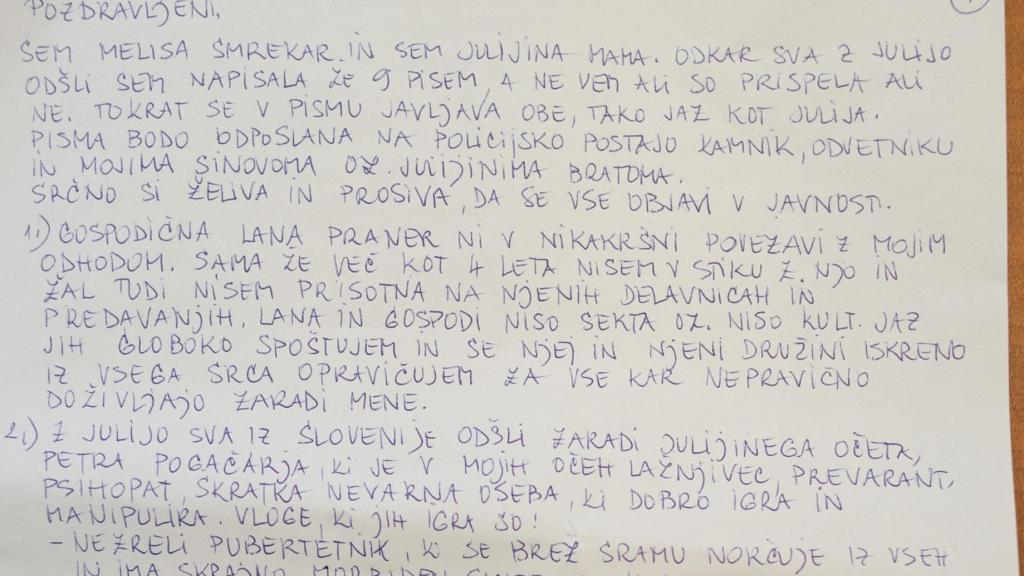 POZDRAVLJENI,
SEM MELISA SMREKAR IN SEM JULIJINA MAMA. ODKAR SVA Z JULIJO
ODŠLI SEM NAPISALA ŽE 9 PISEM, A NE VEM ALI SO PRISPELA ALI
NE. TOKRAT SE V PISMU JAVLJAVA OBE, TAKO JAZ KOT JULIJA.
PISMA BODO ODPOSLANA NA POLICIJSKO POSTAJO KAMNIK, ODVETNIKU
IN MOJIMA SINOVOMA OZ. JULIJINIMA BRATOMA.
SRČNO SI ŽELIVA IN PROSIVA, DA SE VSE OBJAVI V JAVNOSTI.
1.) GOSPODIČNA LANA PRANER NI V NIKAKRŠNI POVEZAVI Z MOJIM
ODHODOM. SAMA ŽE VEČ KOT 4 LETA NISEM V STIKU Z NJO IN
ŽAL TUDI NISEM PRISOTNA NA NJENIH DELAVNICAH IN
PREDAVANJIH. LANA IN GOSPODI NISO SEKTA OZ. NISO KULT. JAZ
JIH GLOBOKO SPOŠTUJEM IN SE NJEJ IN NJENI DRUŽINI ISKRENO
IZ VSEGA SRCA OPRAVIČUJEM ZA VSE KAR NEPRAVIČNO
DOŽIVLJAJO ZARADI MENE.
2.) Z JULIJO SVA IZ SLOVENIJE ODŠLI ZARADI JULIJINEGA OČETA,
PETRA POGAČARJA, KI JE V MOJIH OČEH LAŽNJIVEC, PREVARANT,
PSIHOPAT, SKRATKA NEVARNA OSEBA, KI DOBRO IGRA IN
MANIPULIRA. VLOGE, KI JIH IGRA SO!
- NEZRELI PUBERTETNIK, KI SE BREZ SRAMU NORČUJE IZ VSEH
IN IMA SKRAJNO MORBIDEN